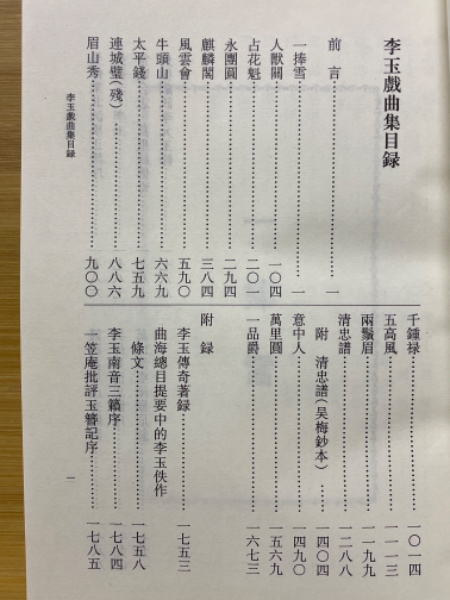 李玉戲曲集目録
前言……………一
一捧雪……………一
人獸關……………一〇四
占花魁……………二〇一
永團圓……………二九四
麒麟閣……………三八四
風雲會……………五九〇
牛頭山……………六六九
太平錢……………七五九
連城璧(殘)……………八八六
眉山秀……………九〇〇
千鍾禄……………一〇一四
五高風……………一一一三
兩鬚眉……………一一九九
清忠譜……………一二八八
附 清忠譜(吴梅鈔本)……一四〇四
意中人……………一四九〇
萬里圓……………一五六九
一品爵……………一六七三
附録
李玉傳奇著録……………一七五三
曲海總目提要中的李玉佚作
條文……………一七五八
李玉南音三籟序……………一七八四
一笠庵批評玉簪記序……………一七八五
李玉戲曲集目録
一